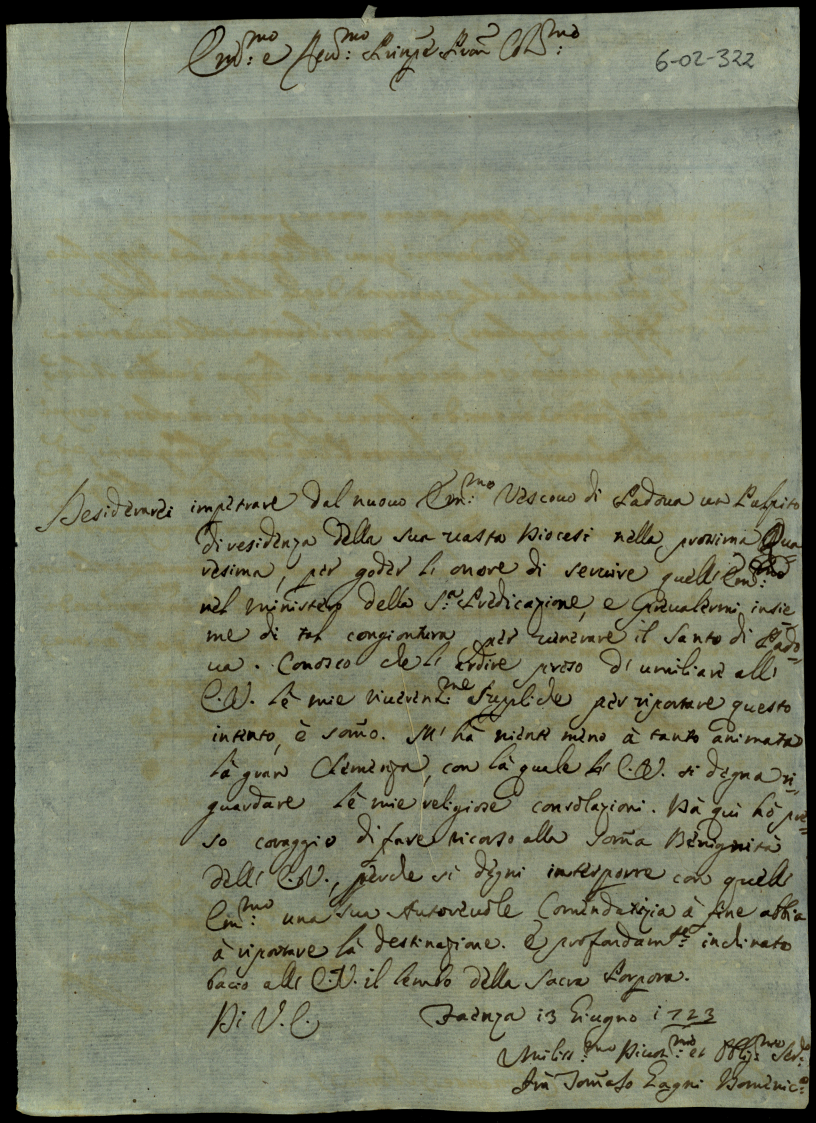 Em.mo e Reu.mo Principe Pron Col.mo
6-02-322
Desidèrarèi impètrare dal nuouo Em.mo Vèscouo di Padoua un Pulpito
di residenza dèlla sua uasta Diocesi nèlla prossima Qua
resima, pèr godèr l'onore di seruire quell'Em.mo
nèl ministero dèlla S.a Prèdicazione, e preualermi insie
me di tal congiontura pèr uenerare il Santo di Pado
ua. Conosco che l'ardire prèso di umiliare all'
E.V. lè mie riuerèntis.me Suppliche pèr riportare questo
intènto, è som̃o. M'hà niènte mèno à tanto animato
là gran Clemènza, con là quale l'E.V. si dègna ri
guardare lè mie religiose consolazioni. Dà qui hò prè
so coraggio di fare ricorso alla som̃a Bènignità
dèll'E.V., pèrche si dègni intèrporre con quell'
Em.mo una sua Autoreuole Comendatizia à fine abbia
à riportare là dèstinazione. E profondam.te inclinato
bacio all'E.V. il lembo dèlla Sacra Porpora.
Di V.E. Faènza 13 Giugno 1723
Umiliss.mo Diuot.mo et Obblig.mo Ser.
Frà Tom̃aso Cagni Domènic.o